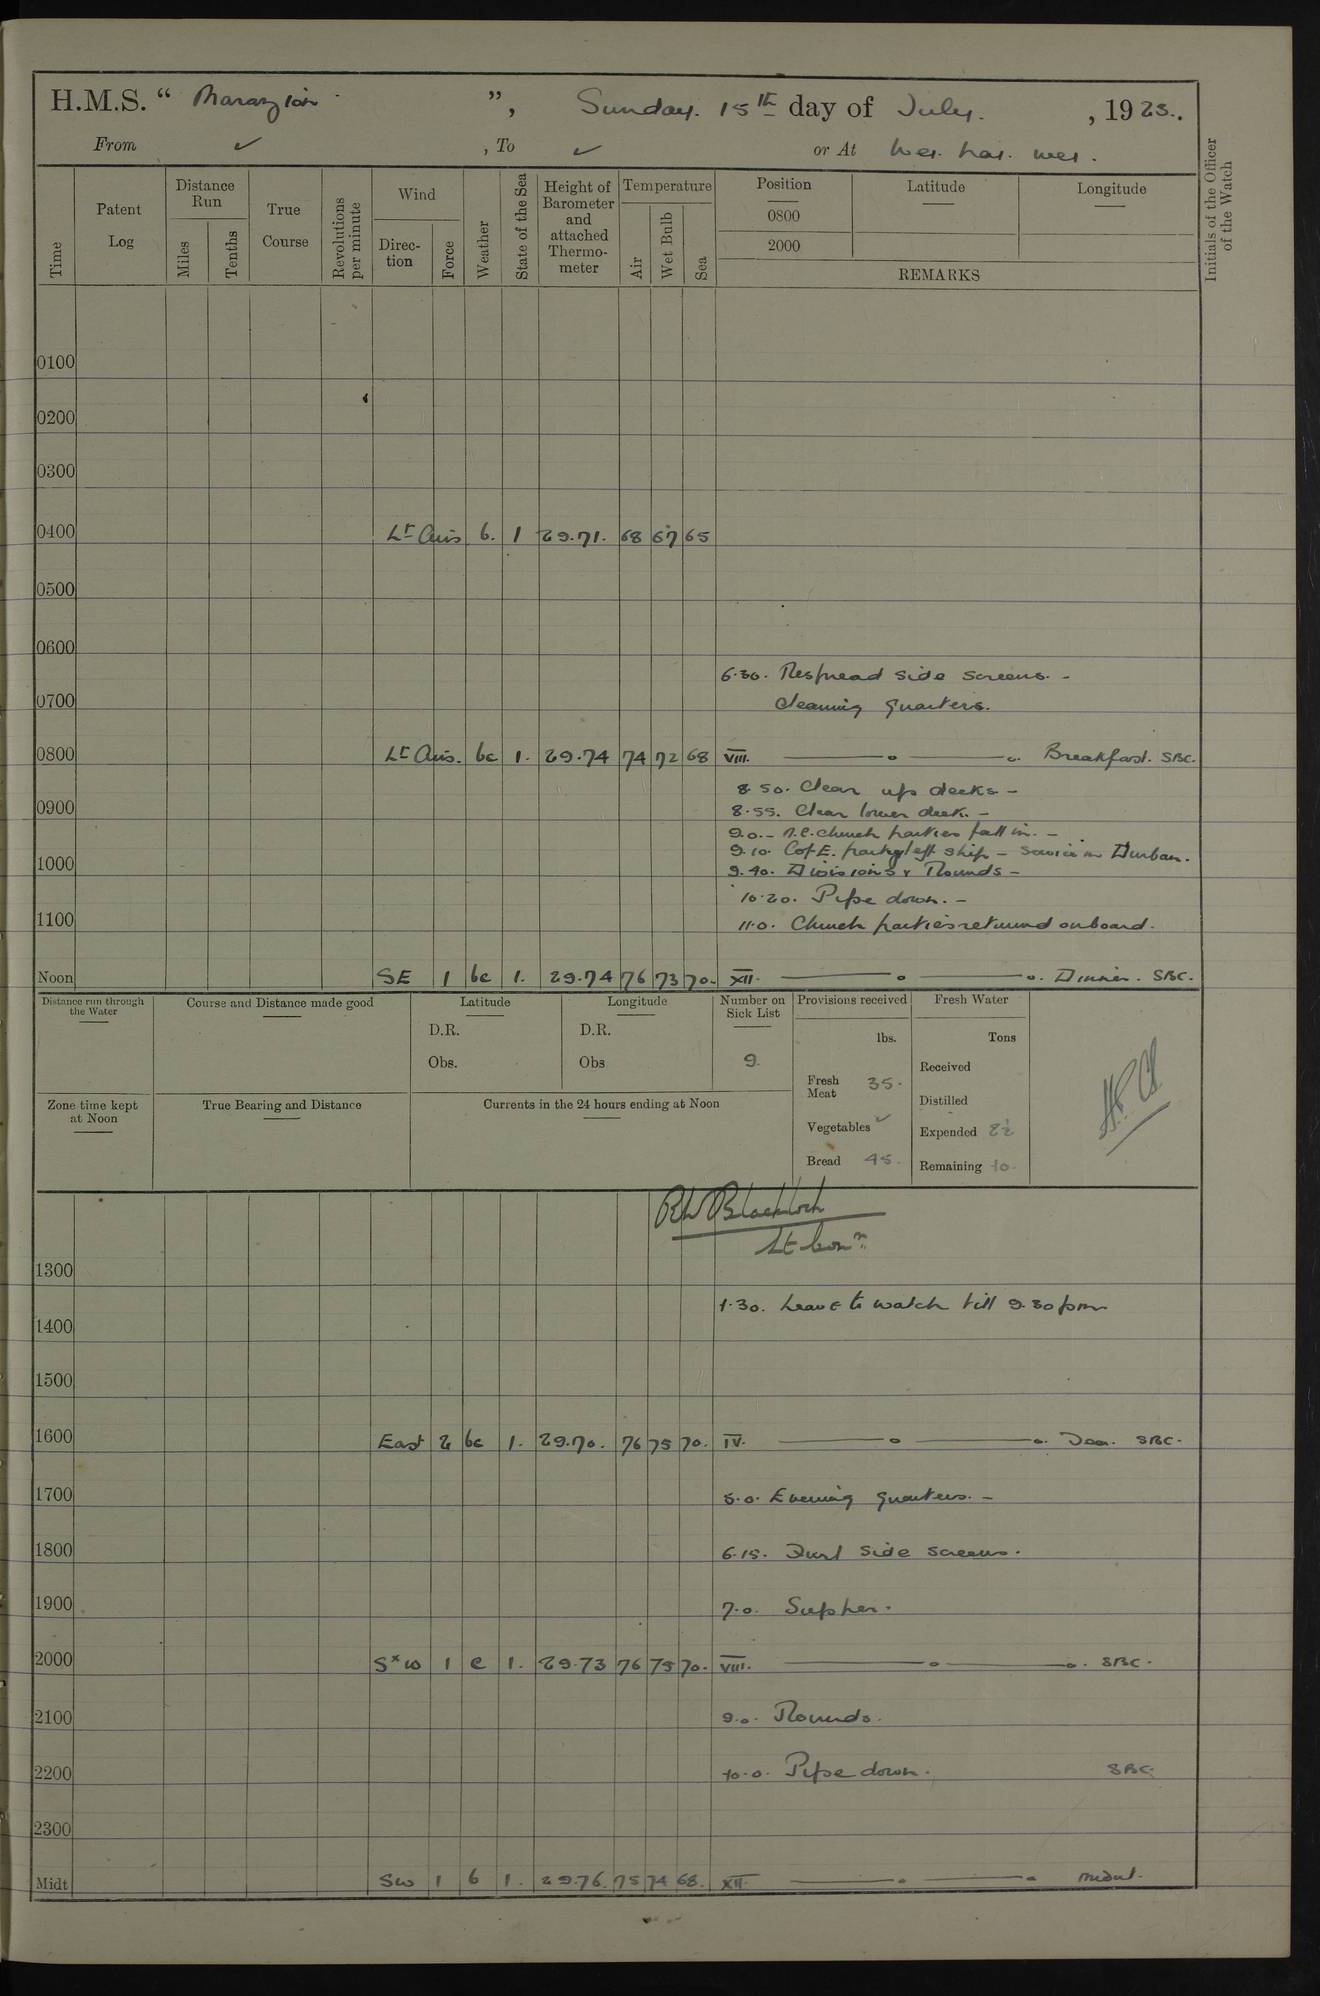 H.M.S. “ Marazion ”, Sunday. 15th day of July. , 1923.
From ✓ , To ✓ or At Wei. hai. wei.
Time
Patent Log
Distance Run
Miles
Tenths
True Course
Revolutions per minute
Wind
Direc-tion
Force
Weather
State of the Sea
Height of Barometer and attached Thermo-meter
Temperature
Air
Wet Bulb
Sea
Position
0800
2000
Latitude
Longitude
REMARKS
Initials of the Officer of the Watch
0100
0200
0300
0400 Lt Airs b. 1 29.71. 68 67 65
0500
0600
6.30. Respread side screens. -
0700 Cleaning quarters.
0800 Lt Airs. bc 1. 29.74 74 72 68 VIII. Breakfast. SBC.
8.50. Clear up decks -
0900 8.55. Clear lower deck. -
9.0. - R.C. church parties fall in. -
1000 9.10. C of E. party left ship - Service in Durban.
9.40. Divisions & Rounds -
10.20. Pipe down. -
1100 11.0. Church parties returned onboard.
Noon SE 1 bc 1. 29.74 76 73 70. XII. Dinner. SBC.
Distance run through the Water
Course and Distance made good
Latitude
D.R.
Obs.
Longitude
D.R.
Obs
Number on Sick List
9.
Provisions received
lbs.
Fresh Meat 35.
Vegetables ✓
Bread 45.
Fresh Water
Tons
Received
Distilled
Expended 2½
Remaining 10.
Zone time kept at Noon
True Bearing and Distance
Currents in the 24 hours ending at Noon
Lt Comr.
1300
1.30. Leave to watch till 9.30 pm
1400
1500
1600 East 2 bc 1. 29.70. 76 75 70. IV. SBC.
1700 5.0. Evening quarters. -
1800 6.15. Furl side screens.
1900 7.0. Supper.
2000 SxW 1 c 1. 29.73 76 75 70. VIII. SBC.
2100 9.0. Rounds.
2200 10.0. Pipe down. SBC
2300
Midt SW 1 b 1. 29.76. 75 74 68. XII.